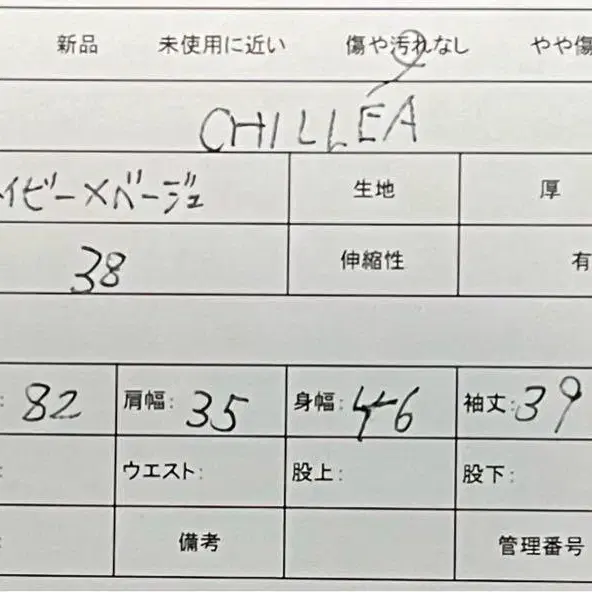 新品 未使用に近い 傷や汚れなし やや傷
CHILLEA
イビー×ベージュ 生地 厚
38 伸縮性 有
: 82 肩幅: 35 身幅: 46 袖丈: 39
: ウエスト: 股上: 股下:
: 備考 管理番号